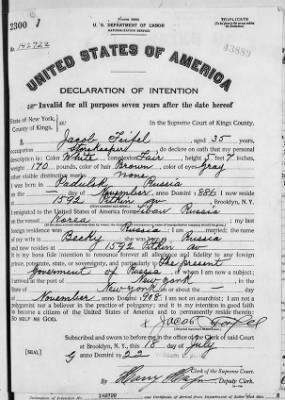 2300
U. S. DEPARTMENT OF LABOR
NATURALIZATION SERVICE
TRIPLICATE
No. 142722
43889
UNITED STATES OF AMERICA
DECLARATION OF INTENTION
Invalid for all purposes seven years after the date hereof
State of New York,
County of Kings,
In the Supreme Court of Kings County.
I, Jacob Teifel, aged 35 years,
occupation Storekeeper, do declare on oath that my personal
description is: Color White, complexion Fair, height 5 feet 7 inches,
weight 170 pounds, color of hair Brown, color of eyes Gray
other visible distinctive marks none
I was born in Radulsk Russia
on the — day of November, anno Domini 1886; I now reside
at 1592 Pitkin av, Brooklyn, N.Y.
I emigrated to the United States of America from Russia
on the vessel; my last
foreign residence was Russia; I am married; the name
of my wife is Becky; she was born at Russia
and now resides at 1592 Pitkin av
It is my bona fide intention to renounce forever all allegiance and fidelity to any foreign
prince, potentate, state, or sovereignty, and particularly to The present
Government of Russia, of whom I am now a subject;
I arrived at the port of New York, in the
State of New York, on or about the — day
of November, anno Domini 1908; I am not an anarchist; I am not a
polygamist nor a believer in the practice of polygamy; and it is my intention in good faith
to become a citizen of the United States of America and to permanently reside therein:
SO HELP ME GOD.
Subscribed and sworn to before me in the office of the Clerk of said Court
at Brooklyn, N.Y., this 18 day of July
[SEAL]
anno Domini 1922
Clerk of the Supreme Court.
By Deputy Clerk.